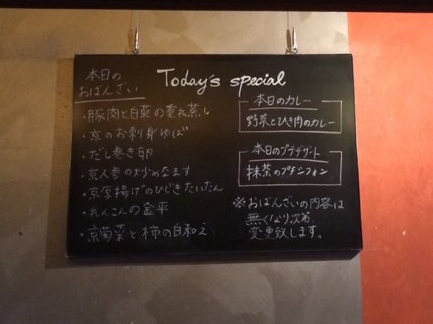 Today's special
本日の
おばんざい
・豚肉と白菜の重ね蒸し
・京のお刺身ゆば
・だし巻き卵
・京人参の炒めなます
・京厚揚げのひじきたいたん
・れんこんの金平
・京菊菜と柿の白和え
本日のカレー
野菜とひき肉のカレー
本日のプチデザート
抹茶のプチシフォン
※おばんざいの内容は
無くなり次第
変更致します。